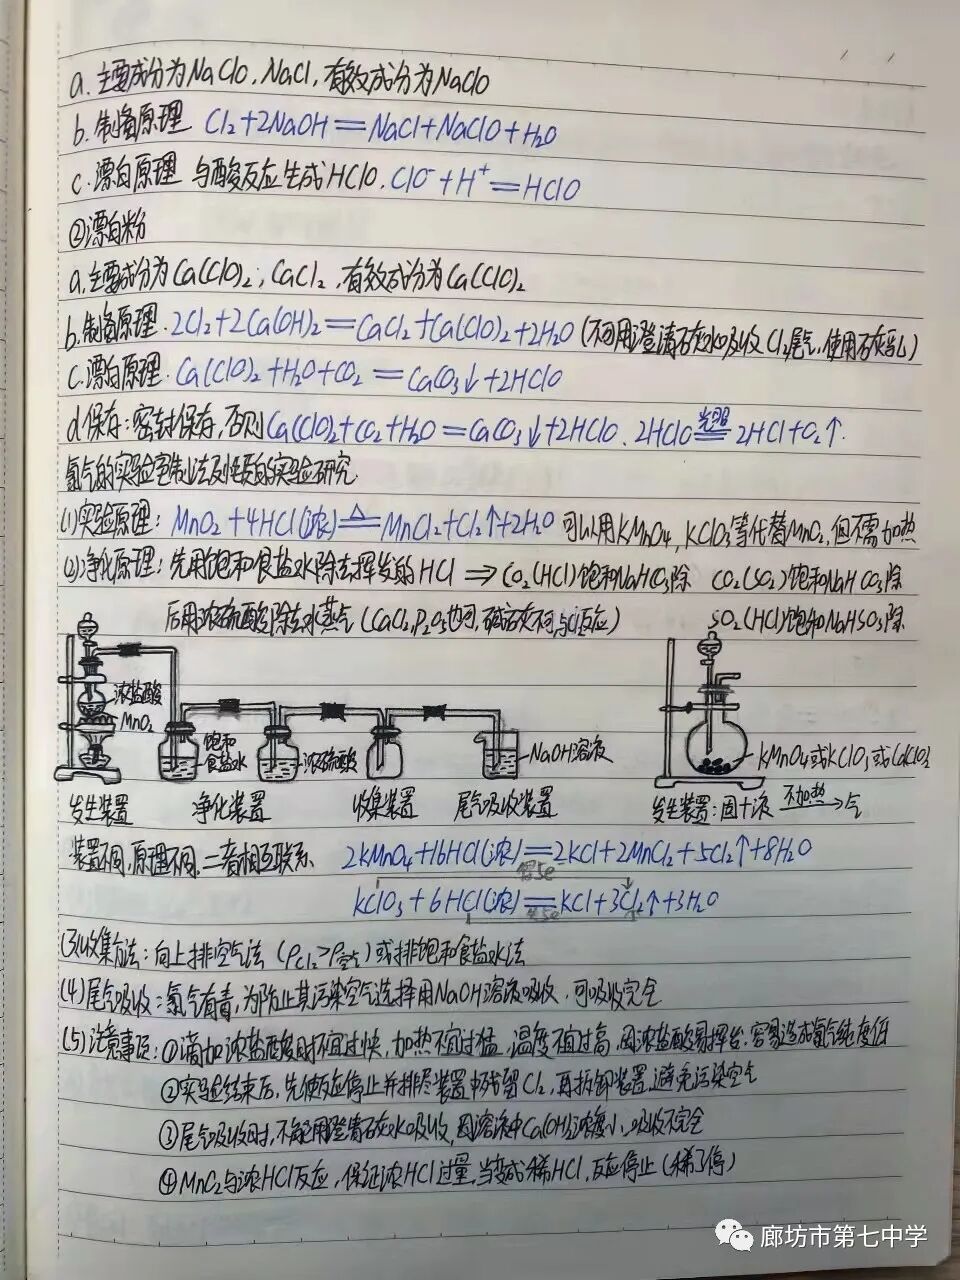 a. 主要成分为NaClO, NaCl, 有效成分为NaClO
b. 制备原理 Cl₂+2NaOH=NaCl+NaClO+H₂O
c. 漂白原理 与酸反应生成HClO. ClO⁻+H⁺=HClO
②漂白粉
a. 主要成分为Ca(ClO)₂, CaCl₂, 有效成分为Ca(ClO)₂
b. 制备原理. 2Cl₂+2Ca(OH)₂=CaCl₂+Ca(ClO)₂+2H₂O (不可用澄清石灰水吸收Cl₂尾气, 使用石灰乳)
c. 漂白原理. Ca(ClO)₂+H₂O+CO₂=CaCO₃↓+2HClO
d保存:密封保存,否则Ca(ClO)₂+CO₂+H₂O=CaCO₃↓+2HClO. 2HClO 光照 2HCl+O₂↑.
氯气的实验室制法及性质的实验研究
(1)实验原理: MnO₂+4HCl(浓) △ MnCl₂+Cl₂↑+2H₂O 可以用KMnO₄, KClO₃等代替MnO₂, 但不需加热
(2)净化原理: 先用饱和食盐水除去挥发的HCl ⇒ CO₂(HCl)饱和NaHCO₃除 CO₂(SO₂)饱和NaHCO₃除
后用浓硫酸除去水蒸气 (CaCl₂, P₂O₅也可, 碱石灰不可, 与Cl₂反应) SO₂(HCl)饱和NaHSO₃除
浓盐酸
MnO₂
饱和
食盐水
浓硫酸
NaOH溶液
KMnO₄或KClO₃或Ca(ClO)₂
发生装置 净化装置 收集装置 尾气吸收装置 发生装置:固+液 不加热→气
装置不同,原理不同,二者相互联系. 2KMnO₄+16HCl(浓)=2KCl+2MnCl₂+5Cl₂↑+8H₂O
得5e
KClO₃+6HCl(浓)=KCl+3Cl₂↑+3H₂O
失5e
(3)收集方法: 向上排空气法 (ρCl₂>ρ空气) 或排饱和食盐水法
(4)尾气吸收: 氯气有毒, 为防止其污染空气选择用NaOH溶液吸收, 可吸收完全
(5)注意事项: ①滴加浓盐酸时不宜过快, 加热不宜过猛, 温度不宜过高, 因浓盐酸易挥发. 容易造成氯气纯度低
②实验结束后, 先使反应停止并排尽装置中残留Cl₂, 再拆卸装置, 避免污染空气
③尾气吸收时, 不能用澄清石灰水吸收, 因溶液中Ca(OH)₂浓度小, 吸收不完全
④MnO₂与浓HCl反应, 保证浓HCl过量, 当变成稀HCl, 反应停止 (稀了停)
廊坊市第七中学